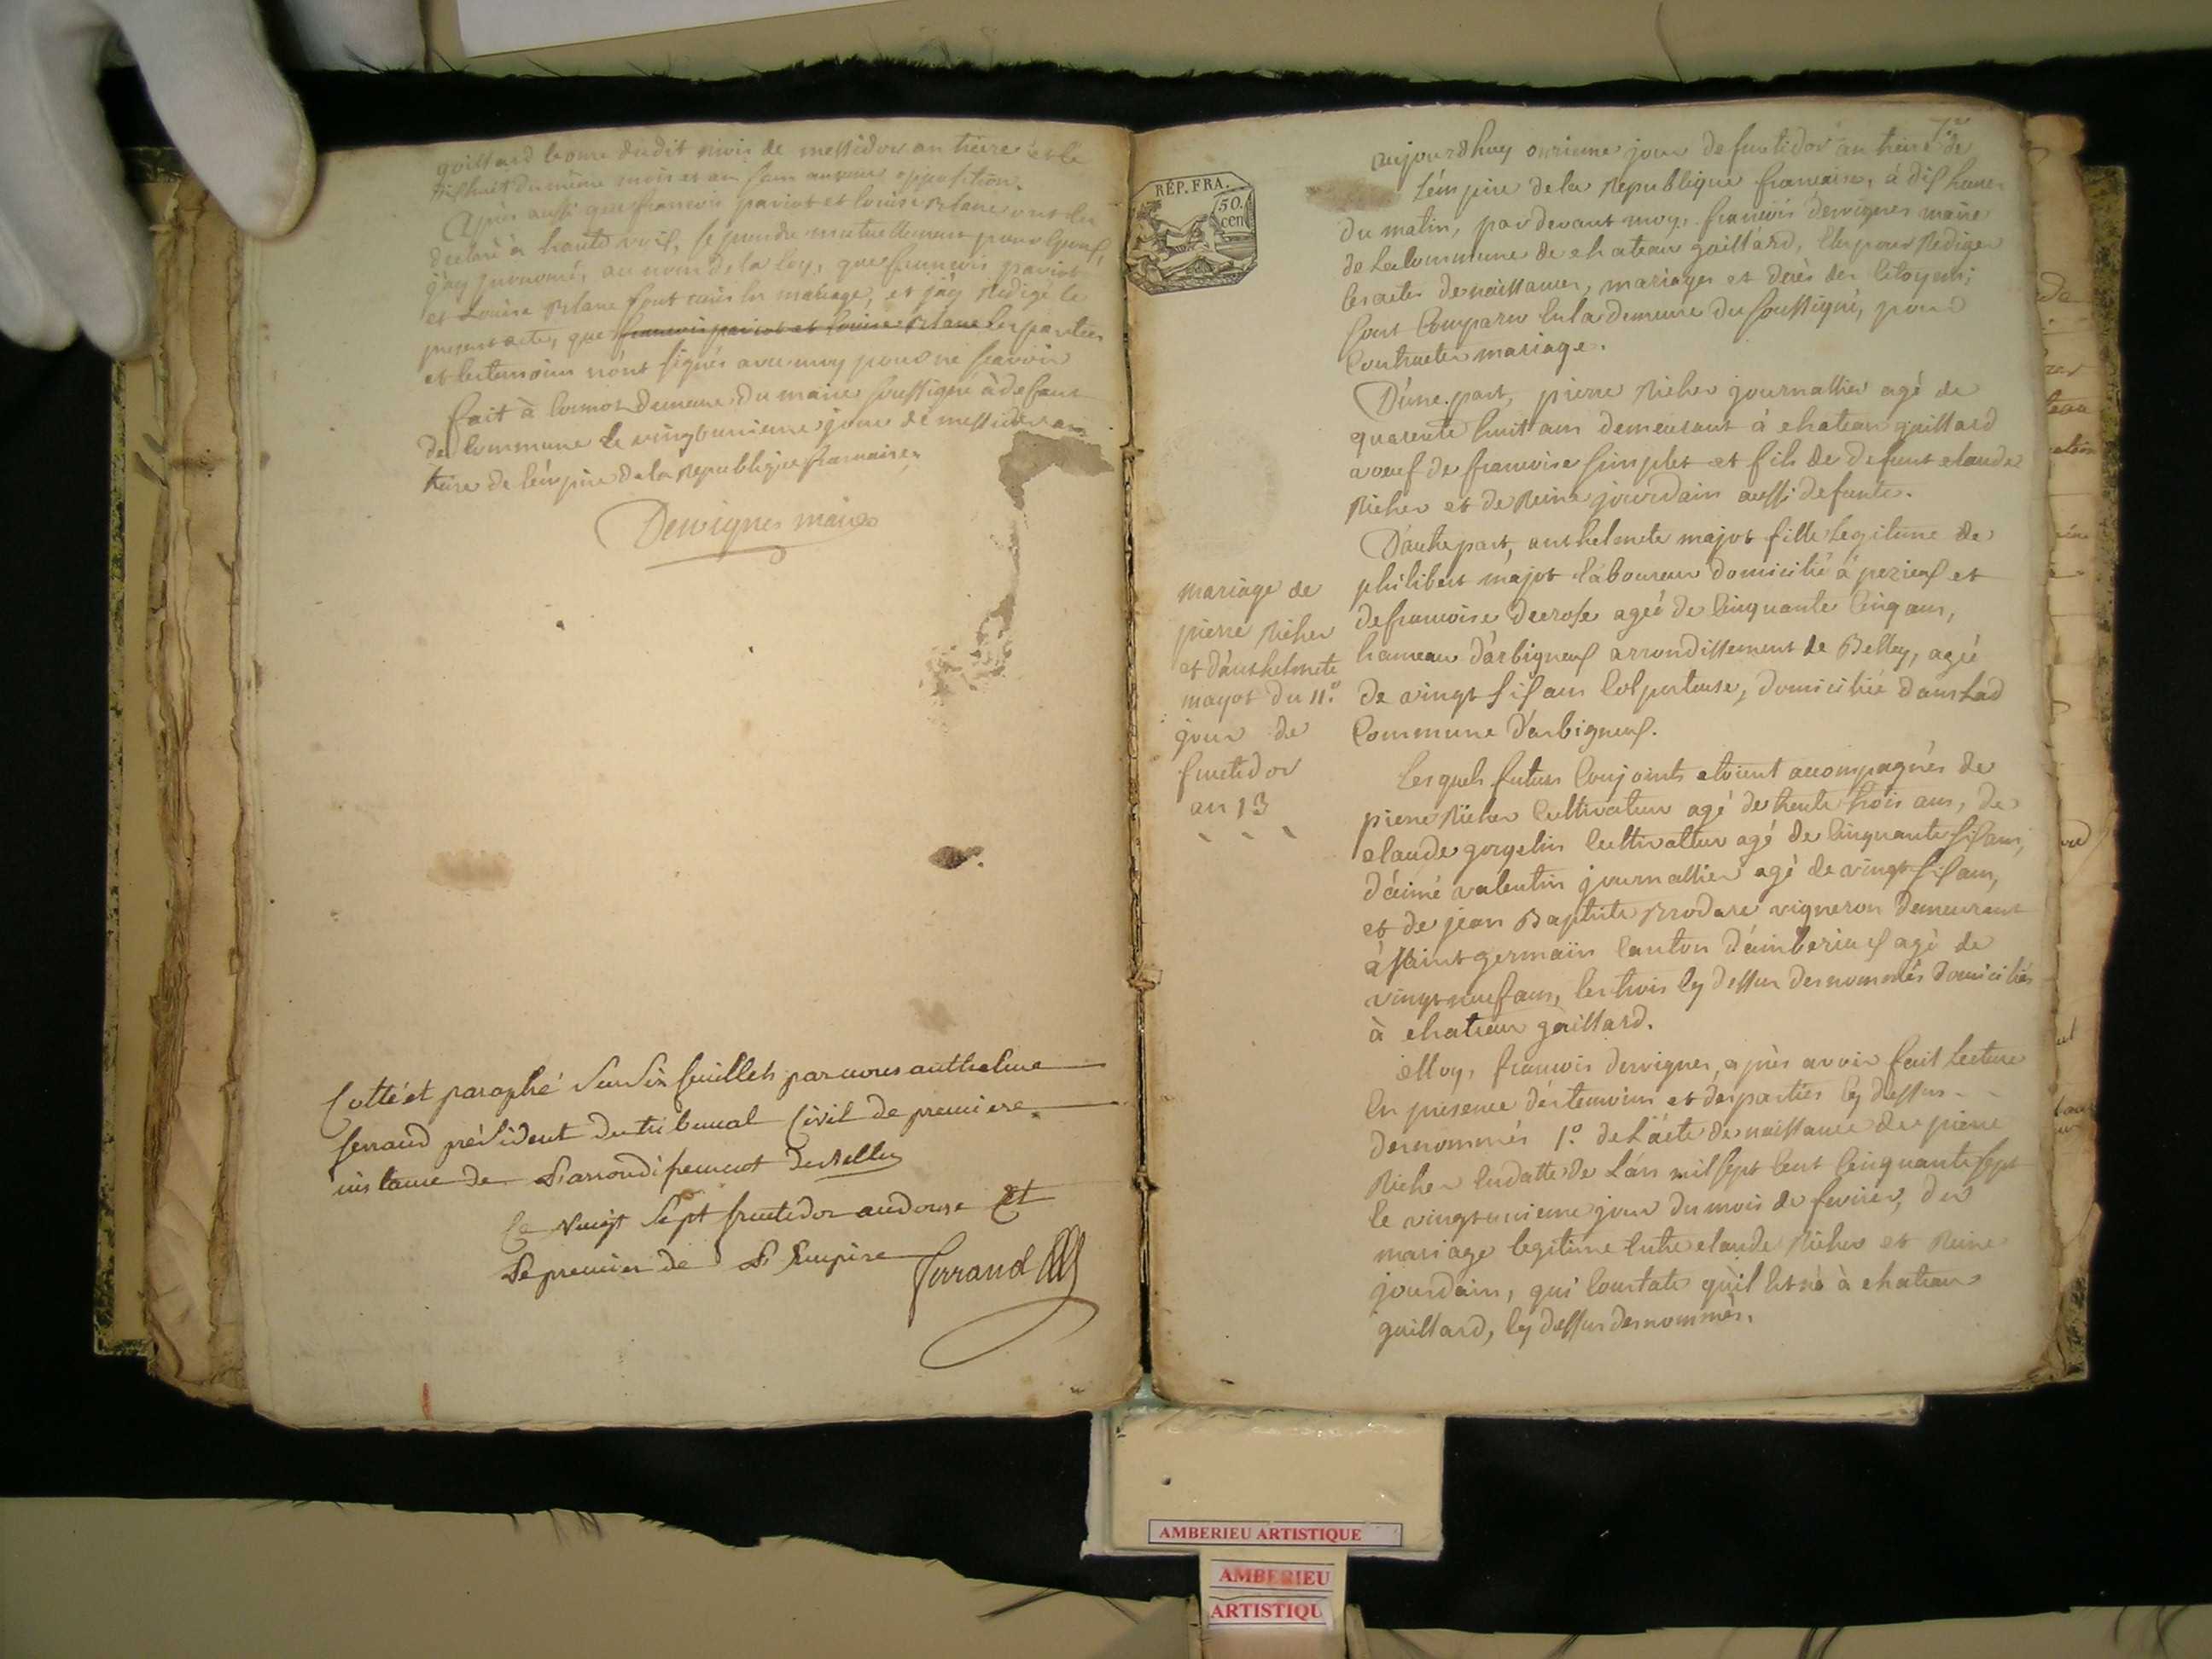 gaillard le onze dudit mois de messidor an treize et le
dixhuit du même mois et an sans aucune opposition.
Après aussi que francois pariot et louise Blanc ont eu
declaré à haute voix, se prendre mutuellement pour Epoux,
j'ay prononcé, au nom de la loy, que francois pariot
et Louise Blanc sont unis en mariage, et j'ay Redigé le
present acte, que francois pariot et louise Blanc les parties
et les temoins n'ont signés avec moy pour ne scavoir
fait à Cormoz Demeure du maire soussigné à defaut
de commune le vingtunieme jour de messidor an
treize de l'émpire de la Republique francaise.
Dervignes maire
Cotté et paraphé Sur Six feuillets par nous anthelme
ferrand président du tribunal Civil de premiere
instance de L'arrondissement de Belley
Ce vingt Sept fructidor an douze Et
Le premier de L'Empire ferrand
RÉP. FRA.
50.
cen
7.e
aujourdhuy onzieme jour de fructidor an treize de
L'émpire de la Republique francaise, à dix heures
du matin, par devant moy, francois dervignes maire
de la Commune de chateau gaillard, Elu pour Rediger
les actes de naissances, mariages et decès des Citoyens;
sont Comparu En la demeure du soussigné, pour
Contracter mariage.
D'une part, pierre Richer journallier agé de
quarente huit ans demeurant à chateau gaillard
aveuf de francoise simplet et fils de defunt claude
Richer et de Reine jourdain aussi defunte.
D'autre part, anthelmete majot fille legitime de
philibert majot laboureur domicilié à pezieux et
de francoise decrose agée de Cinquante Cinq ans,
hameau d'arbigneux arrondissement de Belley, agée
de vingt six ans Colporteuse, domiciliée dans Lad
Commune d'arbigneux.
mariage de
pierre Richer
et d'anthelmete
mayot du 11.e
jour de
fructidor
an 13
Lesquels futurs Conjoints etoient accompagnés de
pierre Richer Cultivateur agé de trente trois ans, de
claude goyelin Cultivateur agé de Cinquante six ans,
d'aimé valentin journallier agé de vingt six ans,
et de jean Baptiste Brodare vigneron demeurant
à Saint germain Canton d'amberieux agé de
vingt neuf ans, les trois Cy dessus denommés domiciliés
à chateau gaillard.
Moy, francois dervignes, après avoir fait lecture
En presence des temoins et des parties Cy dessus
denommés 1.o de L'acte de naissance de pierre
Richer En datte de L'an mil sept Cent Cinquante sept
le vingtunieme jour du mois de fevrier, du
mariage legitime Entre claude Richer et Reine
jourdain, qui Constate qu'il Est né à chateau
gaillard, Cy dessus denommés.
AMBERIEU ARTISTIQUE
AMBERIEU
ARTISTIQU